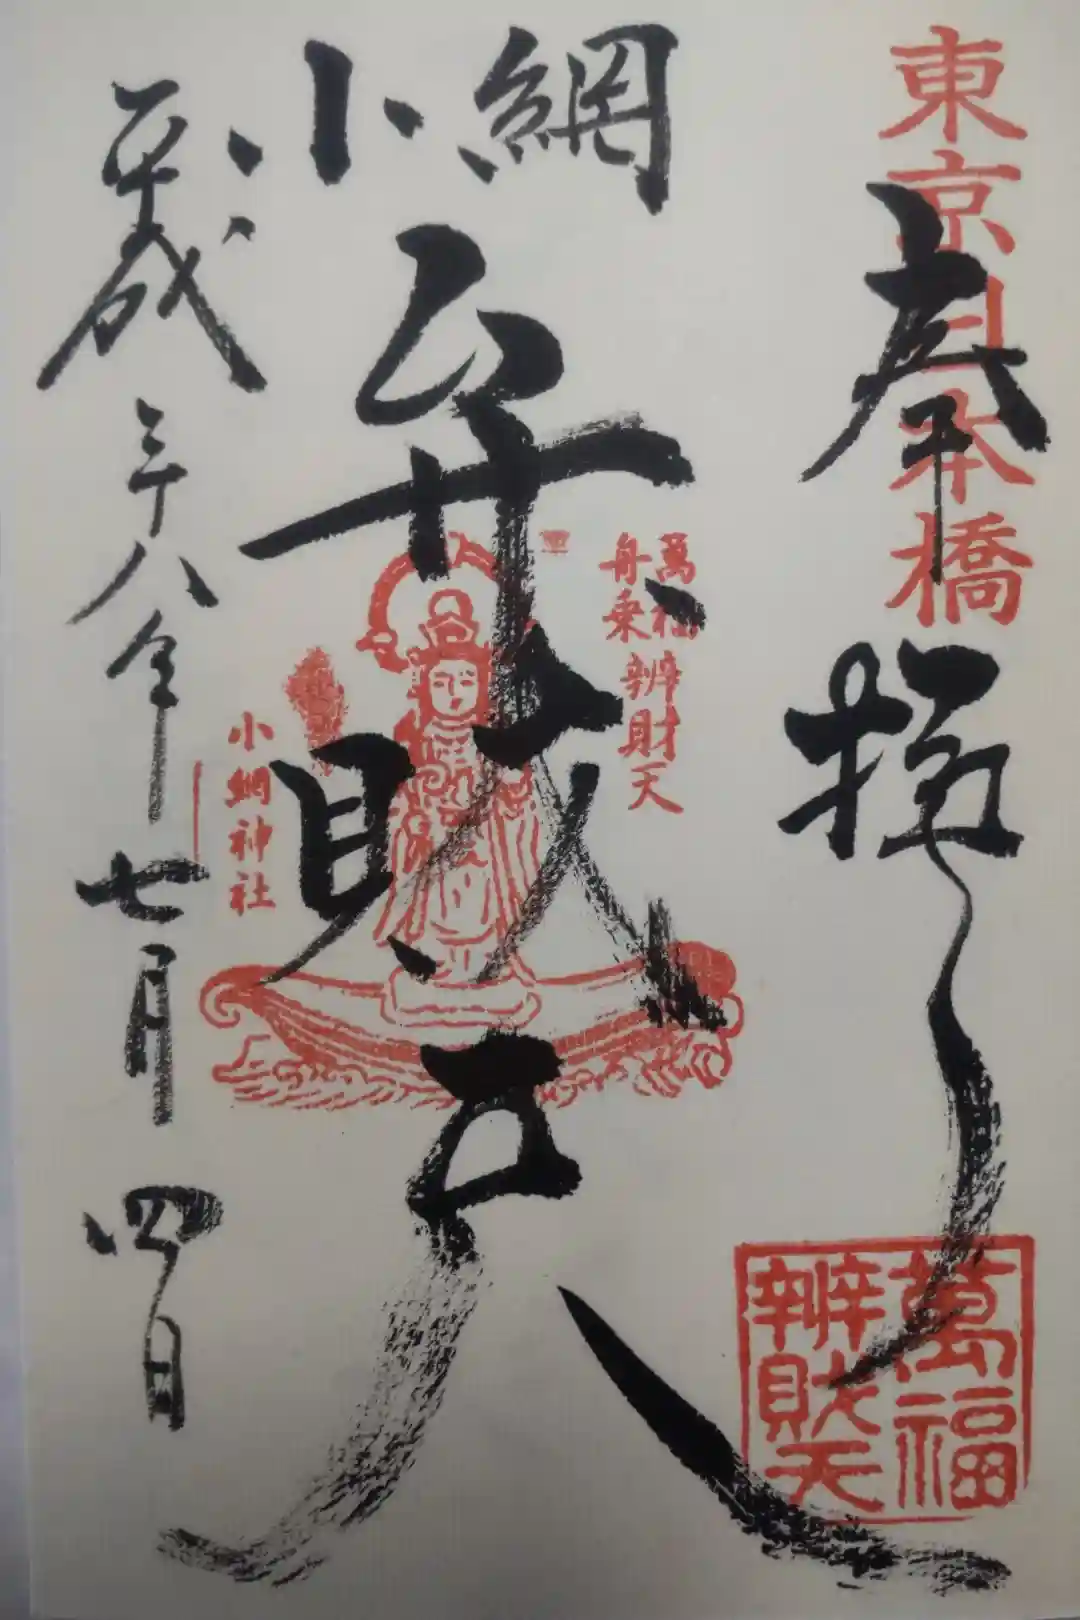 東京日本橋
奉拝
萬福
舟乗辨財天
小網
弁財天
小網神社
平成二十八年七月四日
萬福
辨財天